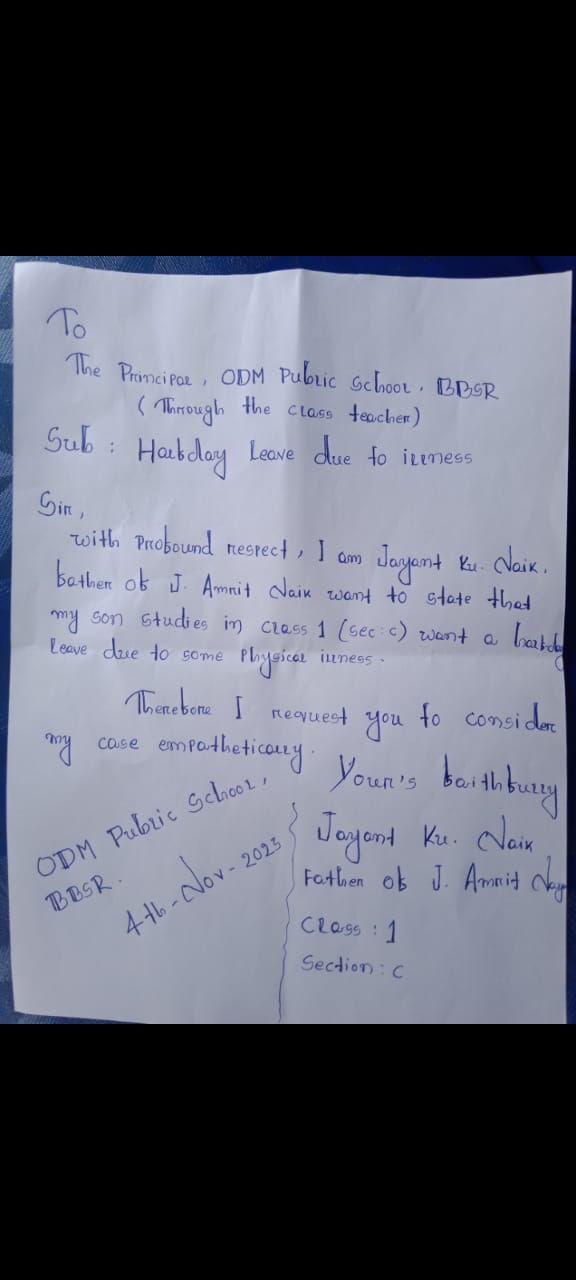 To
The Principal, ODM Public School, BBSR
(Through the class teacher)
Sub : Halfday Leave due to illness
Sir,
with Profound respect, I am Jayant Ku. Naik,
father of J. Amrit Naik want to state that
my son studies in class 1 (sec:c) want a halfday
leave due to some Physical illness.
Therefore I request you to consider
my case empathetically.
Your's faithfully
ODM Public School,
BBSR.
4th-Nov-2023
Jayant Ku. Naik
Father of J. Amrit
Class : 1
Section : c